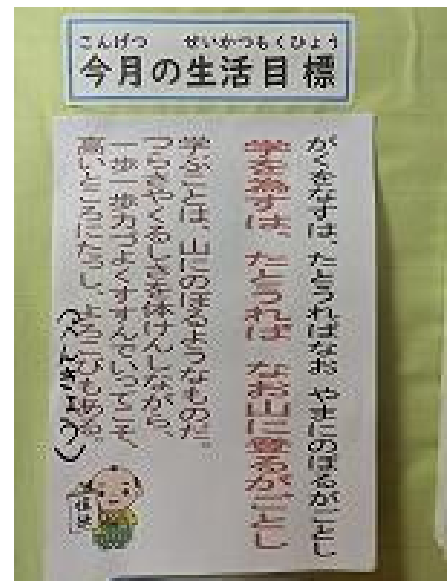 こんげつ せいかつもくひょう
今月の生活目標
がくをなすは、たとうればなお やまにのぼるがごとし
学を為すは、たとうれば なお山に登るがごとし
学ぶことは、山にのぼるようなものだ。
つらさやくるしさを体けんしながら、
一歩一歩力づよくすすんでいってこそ、
高いところにたっし、よろこびもある。